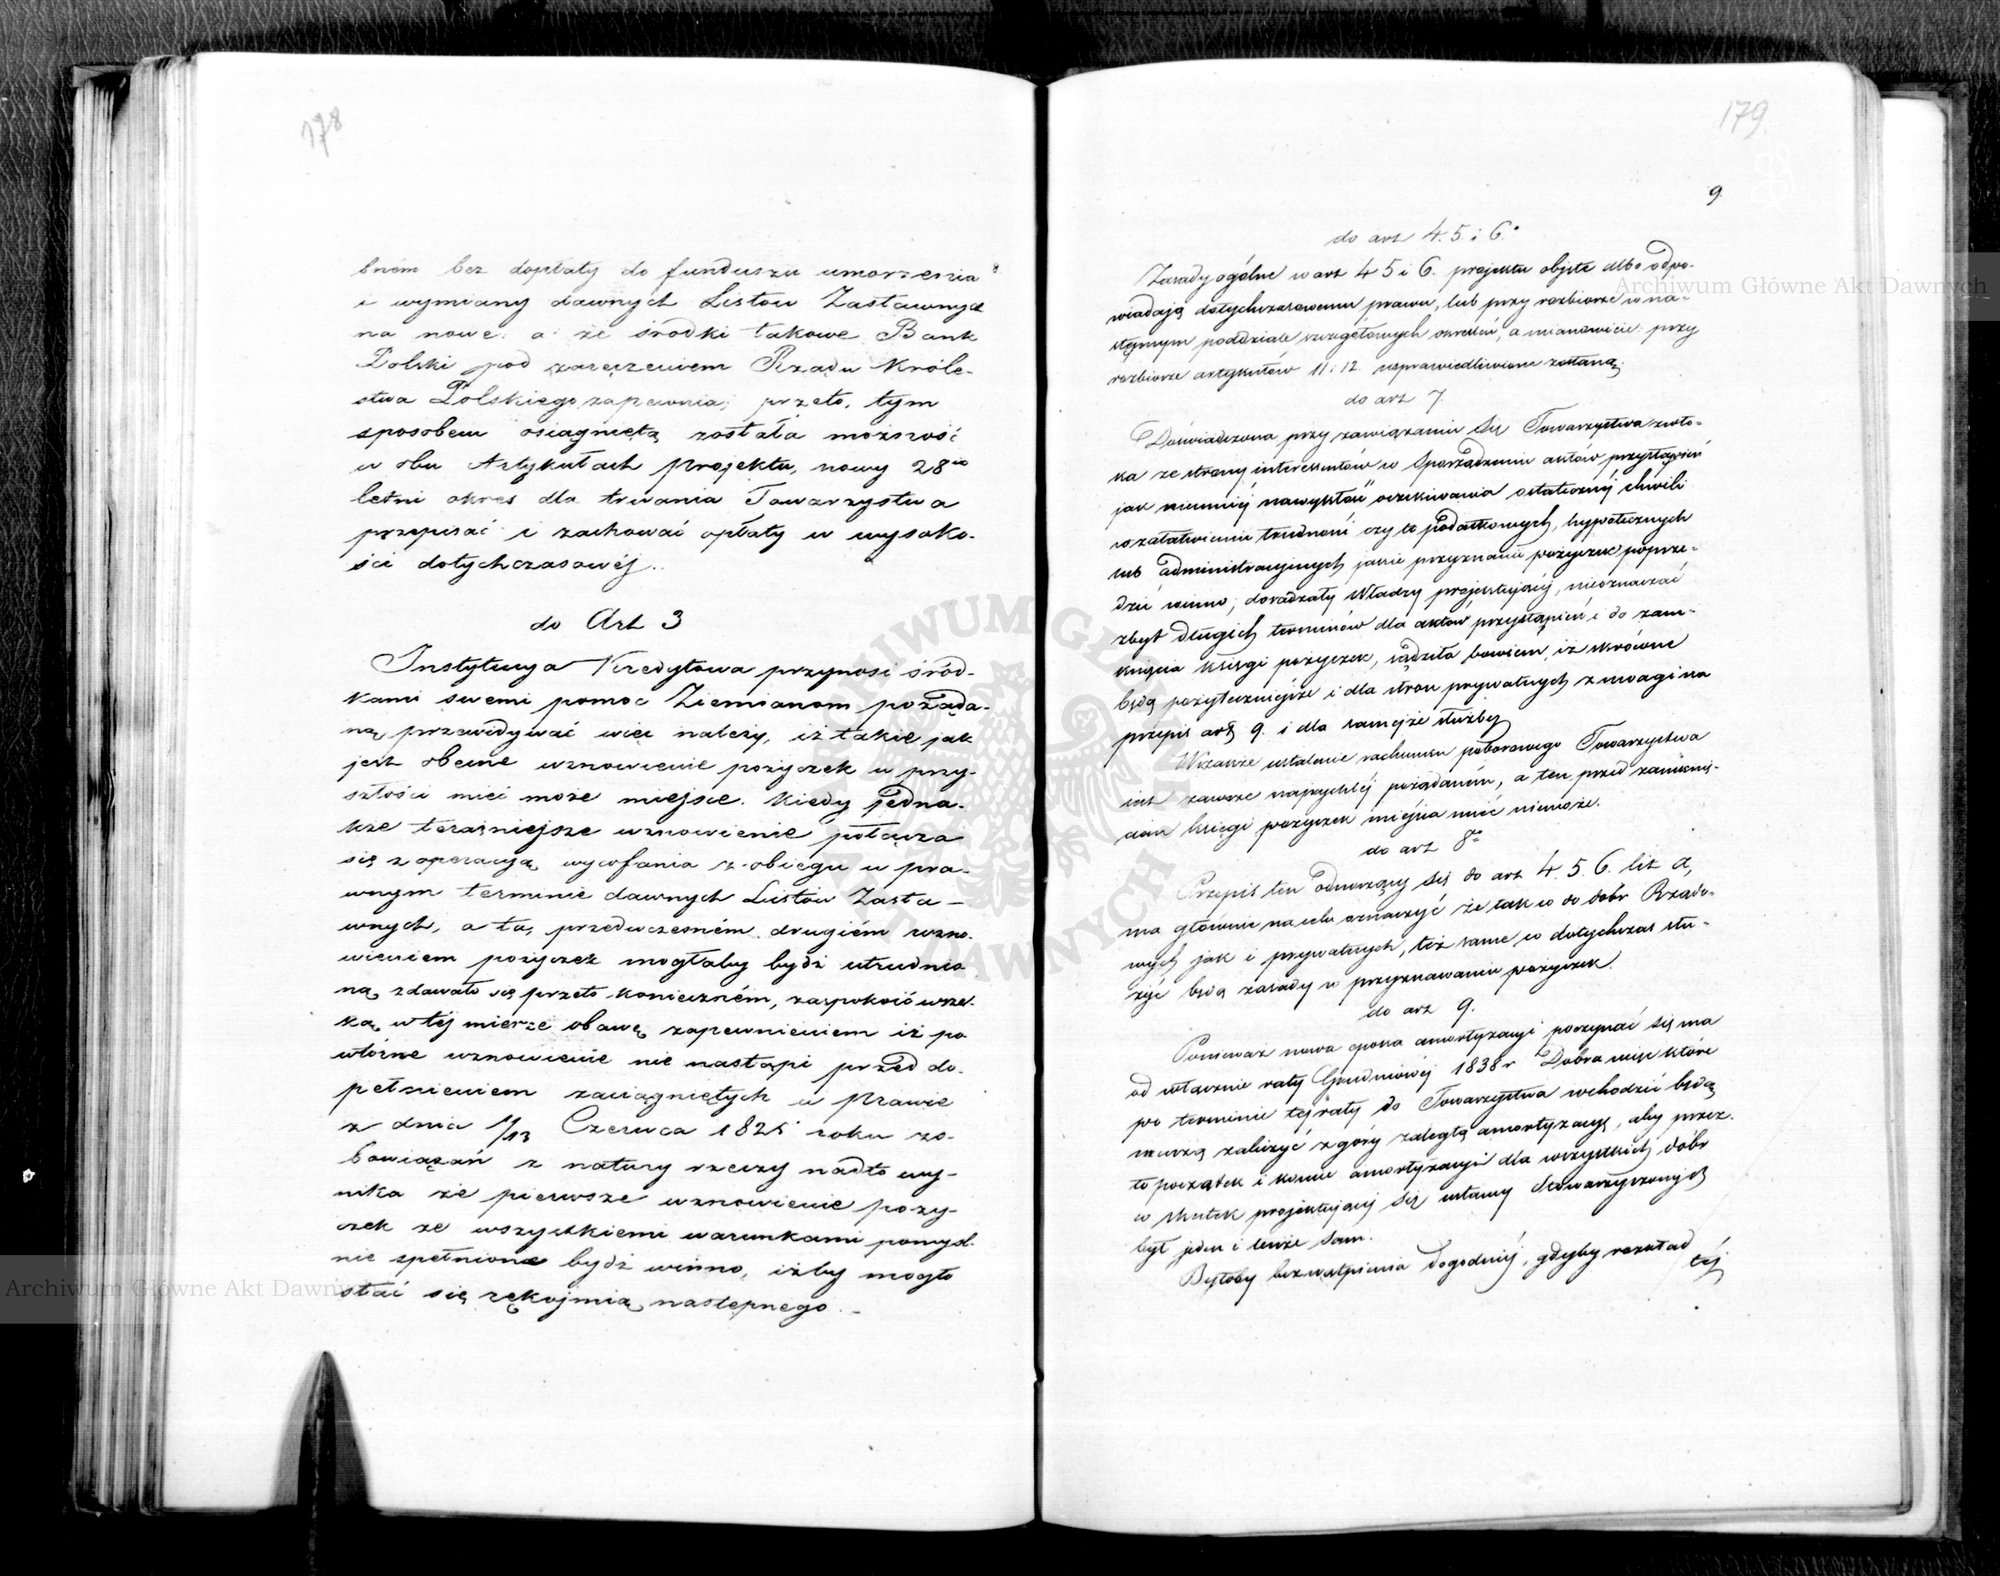 178
bném bez dopłaty do funduszu umorzenia
i wymiany dawnych Listów Zastawnych
na nowe: a że środki takowe Bank
Polski pod zaręczeniem Rządu Króle-
stwa Polskiego zapewnia; przeto, tym
sposobem osiągniętą została możność
w obu Artykułach projektu, nowy 28io
letni okres dla trwania Towarzystwa
przepisać i zachować opłaty w wysoko-
ści dotychczasowéj.
do Art 3
Instytucya Kredytowa przynosi śród-
kami swemi pomoc Ziemianom pożąda-
ną, przewidywać więc należy, iż takie jak
jest obecne wznowienie pożyczek w przy-
szłości mieć może miejsce. Kiedy jedna-
kże teraźniejsze wznowienie połącza
się z operacyą wycofania z obiegu w pra-
wnym terminie dawnych Listów Zasta-
wnych, a ta, przedwczesném drugiém wzno-
wieniem pożyczek mogłaby bydź utrudnio
ną, zdawało się przeto konieczném, zaspokoić wsze-
ką w téj mierze obawę zapewnieniem iż po
wtórne wznowienie nie nastąpi przed do-
pełnieniem zaciągniętych w Prawie
z dnia 1/13 Czerwca 1825 roku zo-
bowiązań z natury rzeczy nadto wy-
nika że pierwsze wznowienie poży-
czek ze wszystkiemi warunkami pomyśl-
nie spełnione bydź winno, iżby mogło
stać się rękojmią następnego.
179.
9
do art 4. 5. i 6.
Zasady ogólne w art 4 5 i 6. projektu objęte albo odpo-
wiadają dotychczasowemu prawu, lub przy rozbiorze w na-
stępnym poddziale szczegółowych określeń, a mianowicie przy
rozbiorze artykułów 11 i 12. usprawiedliwione zostaną.
do art 7.
Doświadczona przy zawiązaniu się Towarzystwa zwło-
ka ze strony interessentów w sporządzeniu aktów przystąpień
jak niemniéj nawyknień oczekiwania ostatecznéj chwili
w załatwieniu trudności czy to podatkowych, hypotecznych
lub administracyjnych jakie przyznanie pożyczek poprze-
dzić winno; doradzały Władzy projektującéj, nieoznaczać
zbyt długich terminów dla aktów przystąpień i do zam-
knięcia Księgi pożyczek, sądziła bowiem, iż skrócone
będą pożyteczniejsze i dla stron prywatnych z uwagi na
przepis art 9. i dla samejże służby
Wszakże ustalenie rachunku poborowego Towarzystwa
jest zawsze najrychléj pożądaném, a ten przed zamknię-
ciem księgi pożyczek miejsca mieć niemoże.
do art 8o
Przepis ten odnoszący się do art 4. 5. 6. lit a,
ma głównie na celu oznaczyć że tak co do dobr Rządo-
wych jak i prywatnych, też same co dotychczas słu-
żyć będą zasady w przyznawaniu pożyczek.
do art 9.
Ponieważ nowa epoka amortyzacyi poczynać się ma
od włącznie raty Grudniowéj 1838 r Dobra więc które
po terminie téj raty do Towarzystwa wchodzić będą
muszą zaliczyć z góry zaległą amortyzacyę, aby przez
to początek i koniec amortyzacyi dla wszystkich dóbr
w skutek projektującéj się ustawy stowarzyszonych
był jeden i tenże sam.
Byłoby bezwątpienia dogodniéj, gdyby rozkład
téj
Archiwum Główne Akt Dawnych
Archiwum Główne Akt Dawnych
ARCHIWUM GŁÓWNE AKT DAWNYCH